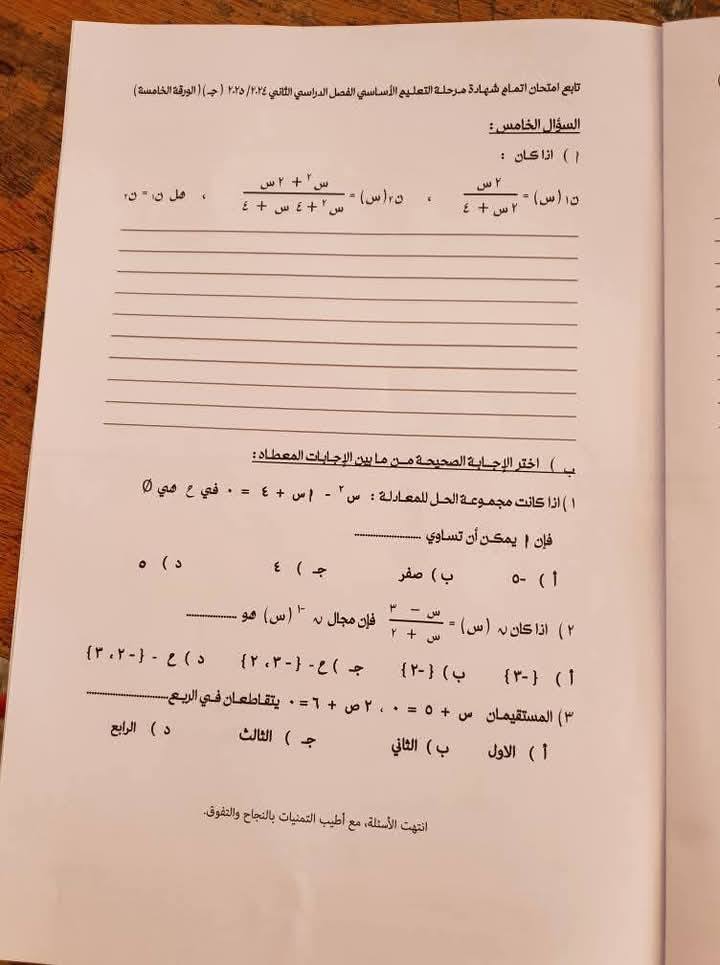 تابع امتحان اتمام شهادة مرحلة التعليم الأساسي الفصل الدراسي الثاني ٢٠٢٤/ ٢٠٢٥ ( جـ ) ( الورقة الخامسة )
السؤال الخامس :
أ ) اذا كان :
ن١ (س) = ٢ س / ٢ س + ٤ ، ن٢ (س) = س٢ + ٢ س / س٢ + ٤ س + ٤ ، هل ن١ = ن٢
ب ) اختر الإجابة الصحيحة من ما بين الإجابات المعطاه :
١ ) اذا كانت مجموعة الحل للمعادلة : س٢ - أ س + ٤ = ٠ في ح هي Ø
فإن أ يمكن أن تساوي ......................
أ ) -٥ ب ) صفر جـ ) ٤ د ) ٥
٢ ) اذا كان ن (س) = س - ٣ / س + ٢ فإن مجال ن-١ (س) هو .................
أ ) {-٣} ب ) {-٢} جـ ) ح - {-٣، ٢} د ) ح - {-٢، ٣}
٣ ) المستقيمان س + ٥ = ٠ ، ٢ ص + ٦ = ٠ يتقاطعان في الربع ......................
أ ) الاول ب ) الثاني جـ ) الثالث د ) الرابع
انتهت الأسئلة، مع أطيب التمنيات بالنجاح والتفوق.